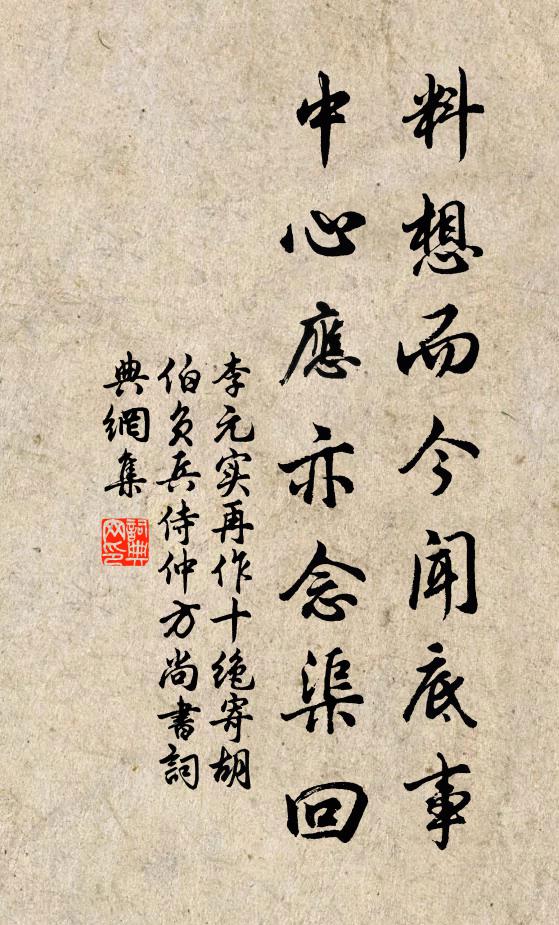 料想而今闻底事
中心應亦念渠回
李元实再作十绝寄胡
伯负兵侍仲方尚書詞
典網集
詞典
网印